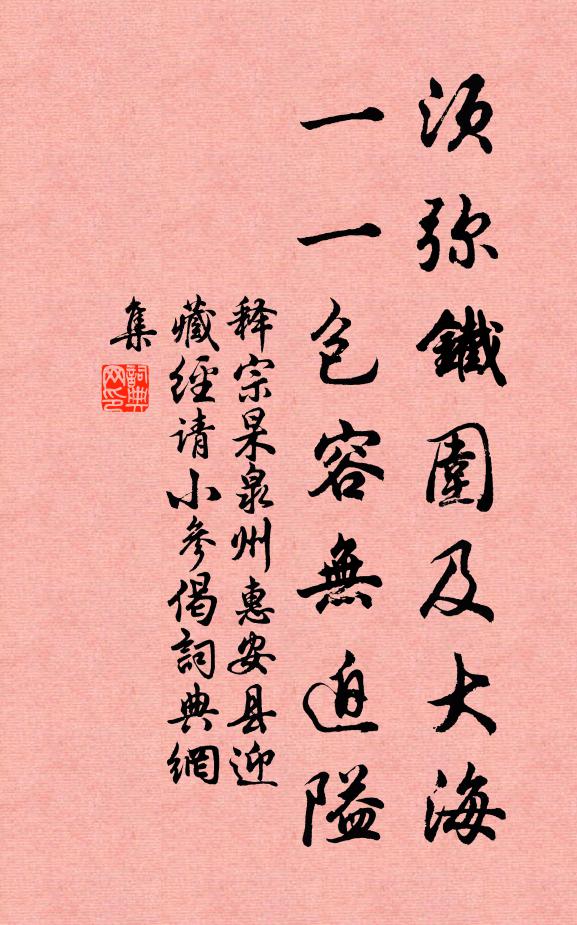 须弥鐵圍及大海
一一包容無迫隘
释宗杲泉州惠安县迎
藏經请小參偈詞典網
集
詞典網印